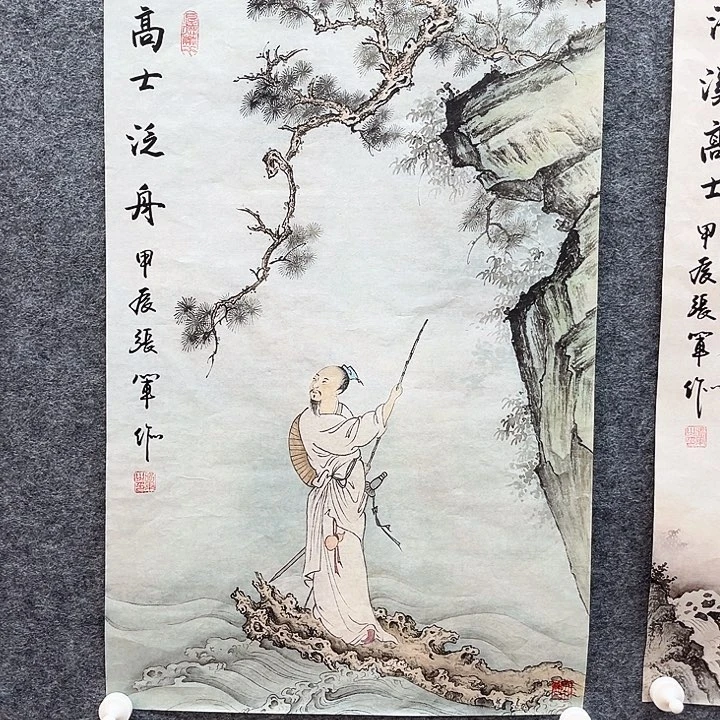 高士泛舟
甲辰張軍作
溪高士
甲辰張軍作